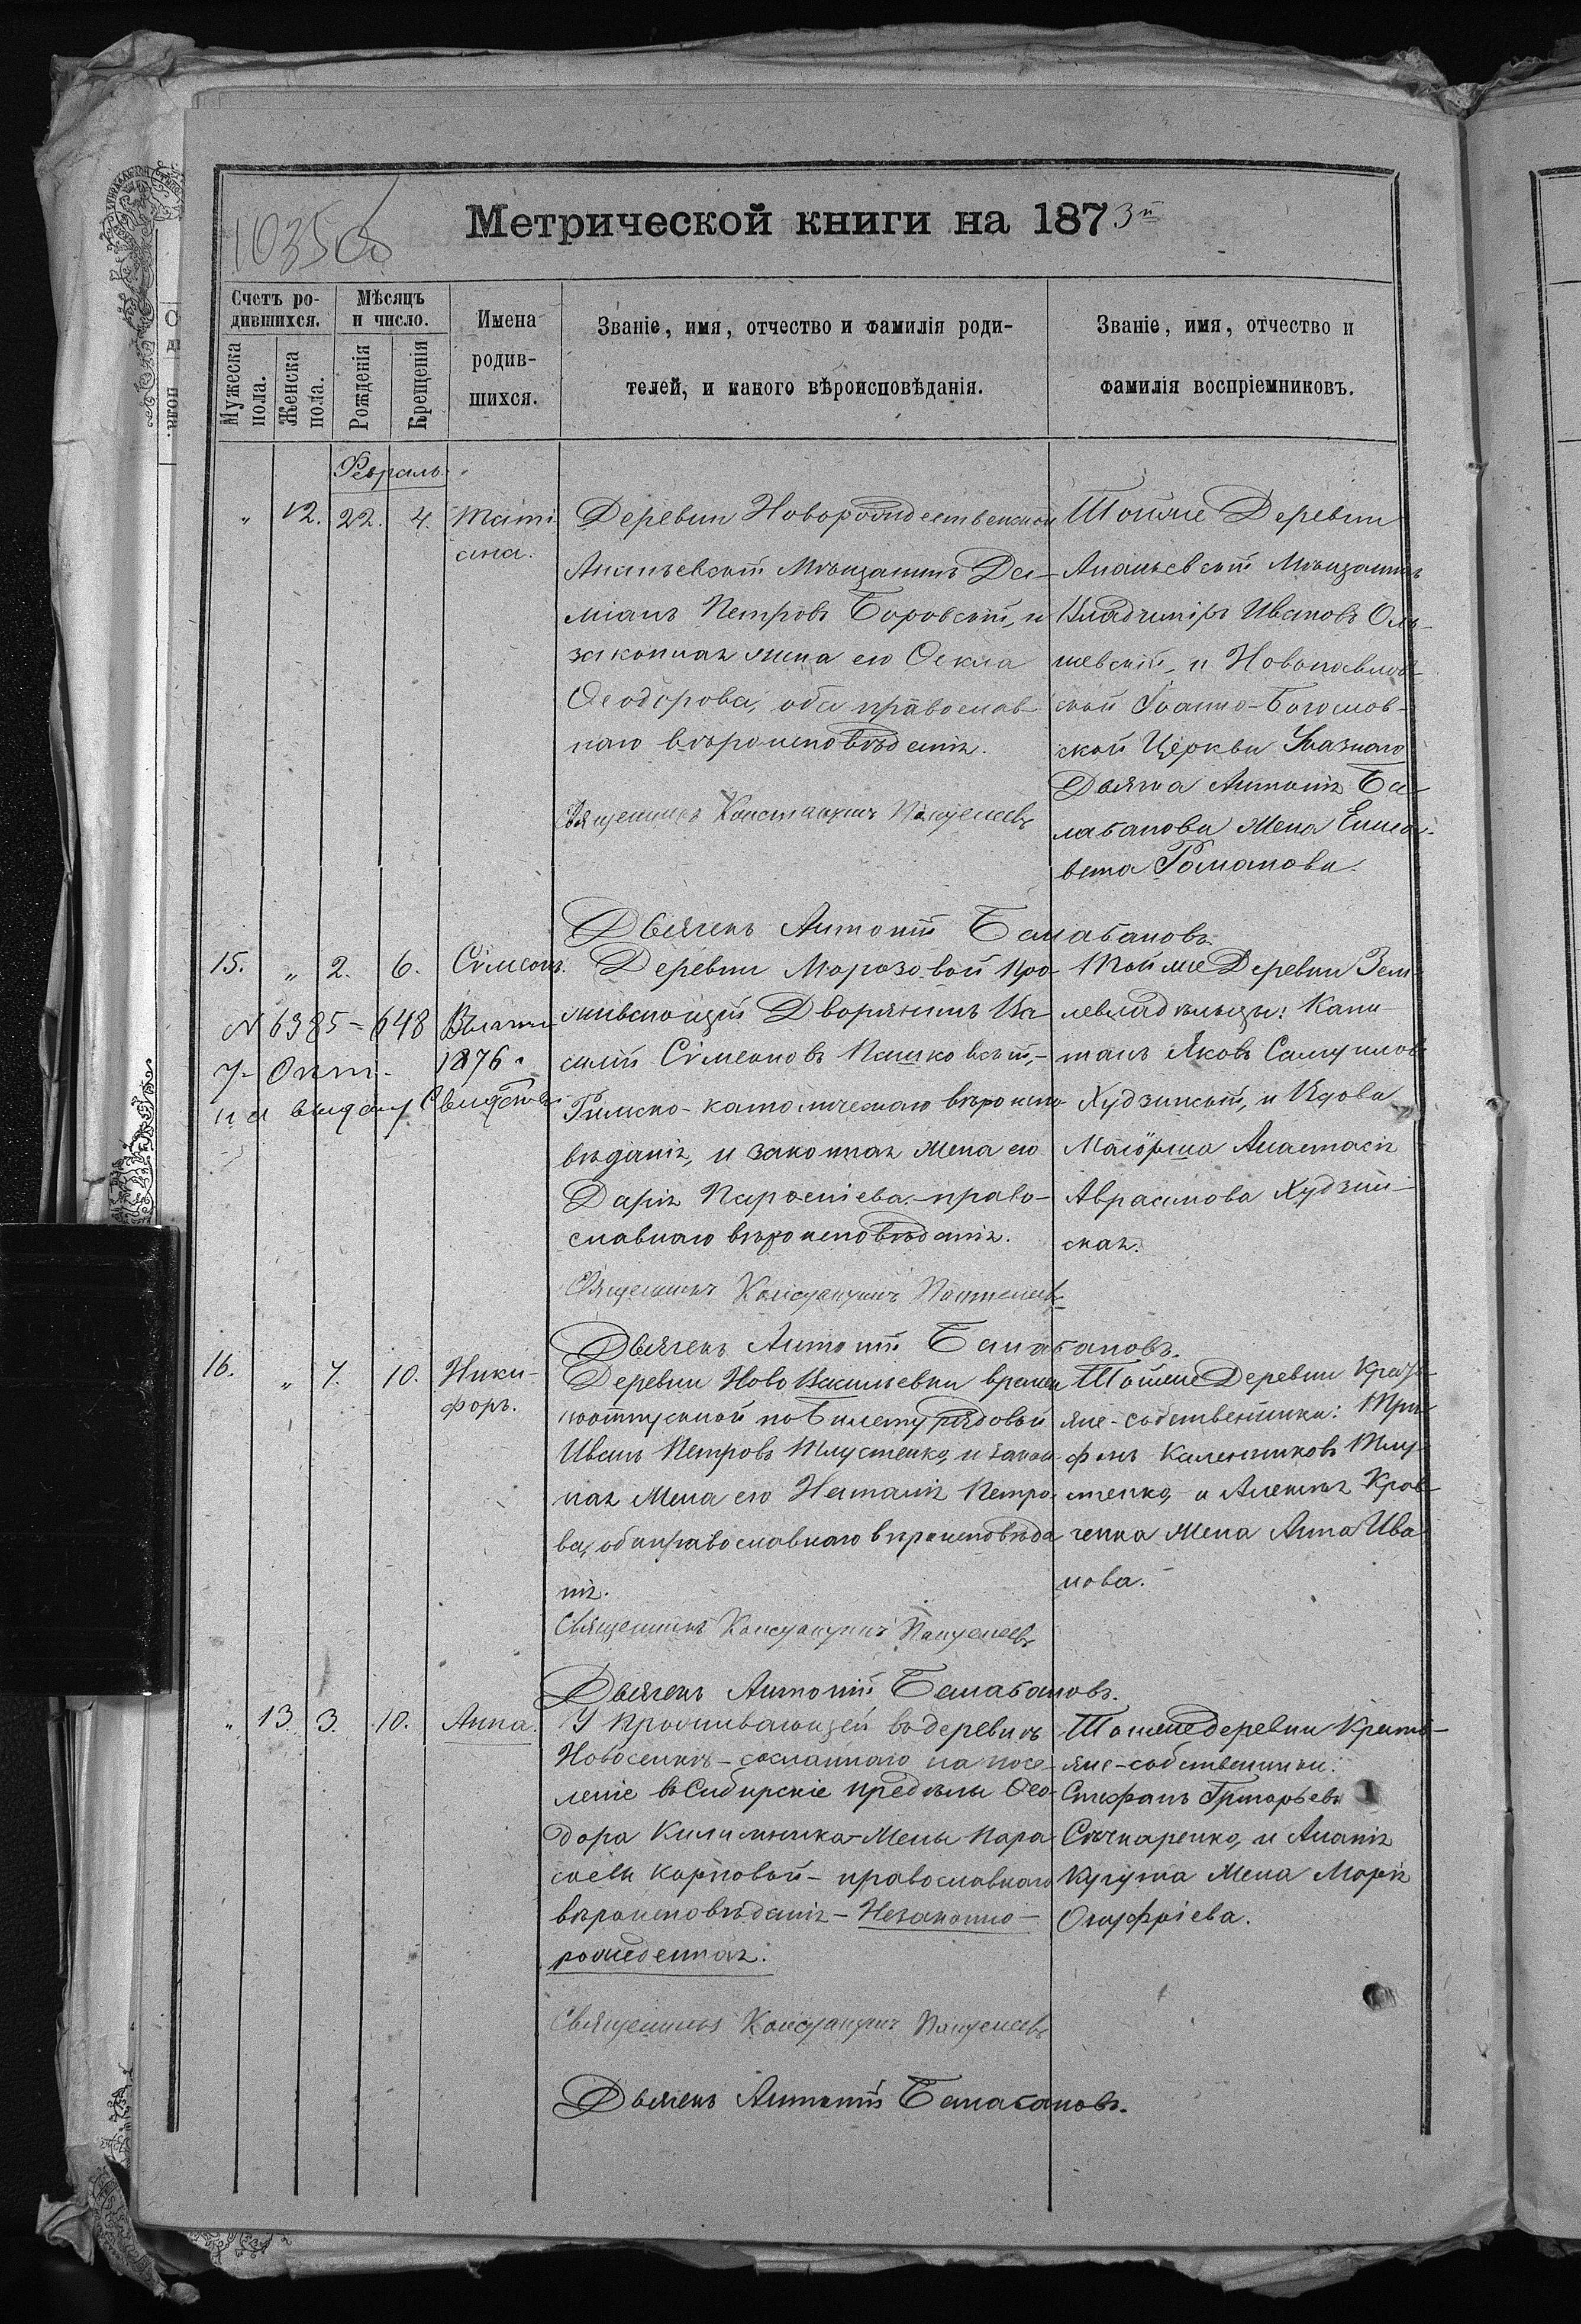 10350
Метрической книги на 1873й
Счетъ ро-
дившихся.
Мѣсяцъ
и число.
Мужеска
пола.
Женска
пола.
Рожденія
Крещенія
Имена
родив-
шихся.
Званіе, имя, отчество и фамилія роди-
телей, и какого вѣроисповѣданія.
Званіе, имя, отчество и
фамилія воспріемниковъ.
Февраль
" 12. 22. 4. Таті-
ана.
Деревни Новорождественской
Ананьевскій Мѣщанинъ Да-
міанъ Петровъ Боровскій, и
законная жена его Ѳекла
Ѳеодорова, оба православ-
наго вѣроисповѣданія.
Священникъ Константинъ Пантелеевъ
Дьячекъ Антоній Балабановъ.
Тойже Деревни
Ананьевскій Мѣщанинъ
Владиміръ Ивановъ Оль-
шевскій, и Новопавлов-
ской Іоанно-Богослов-
ской Церкви
Дьячка Антонія Ба-
лабанова жена Елиса-
вета Романова.
15. " 2. 6. Сѵмеонъ.
N 6385-648
7- Окт. 1876.
Деревни Морозовой про-
живающій Дворянинъ Ва-
силій Сѵмеоновъ Пашковскій,-
Римско-католическаго вѣроиспо-
вѣданія, и законная жена его
Дарія Парѳеніева-право-
славнаго вѣроисповѣданія.
Священникъ Константинъ Пантелеевъ
Дьячекъ Антоній Балабановъ.
Тойже Деревни Зем-
левладѣльцы: Капи-
танъ Яковъ Самуиловъ
Худзинскій, и Вдова
Маіорша Анастасія
Авраамова Худзин-
ская.
16. " 7. 10. Ники-
форъ.
Деревни НовоВасильевки времен-
ноотпускной по билету рядовой
Иванъ Петровъ Тлустенко, и закон-
ная жена его Наталія Петро-
ва, оба православнаго вѣроисповѣда-
нія.
Священникъ Константинъ Пантелеевъ
Дьячекъ Антоній Балабановъ.
Тойже Деревни Кресть-
яне-собственники: Три-
фонъ Каленниковъ Тлу-
стенко, и Алексѣя Крав-
ченка жена Анна Ива-
нова.
" 13. 3. 10. Анна.
У проживающей въ деревнѣ
Новоселкѣ-сосланнаго на посе-
леніе въ Сибирскіе предѣлы Ѳео-
дора Килимника-жены Пара-
скевы Карповой-православнаго
вѣроисповѣданія-Незаконно-
рожденная.
Священникъ Константинъ Пантелеевъ
Дьячекъ Антоній Балабановъ.
Тойже деревни Кресть-
яне-собственники:
Стефанъ Григорьевъ
и Ананія
жена Марія
Онуфріева.